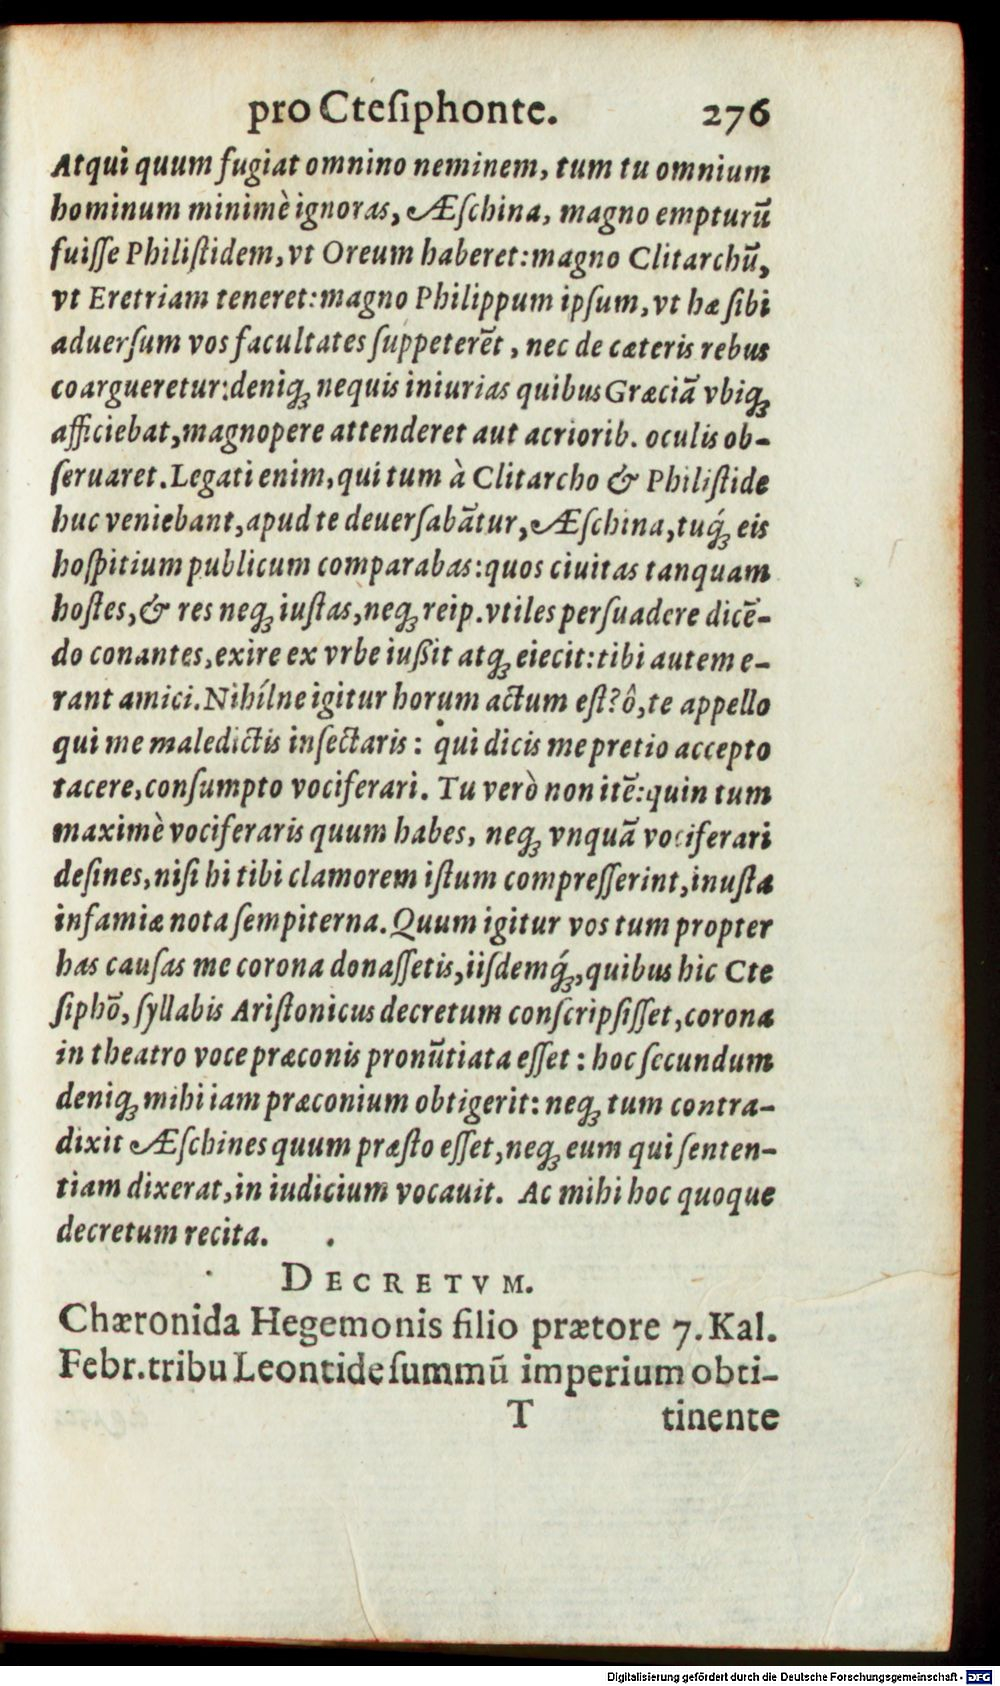 pro Cteſiphonte. 276
Atqui quum fugiat omnino neminem, tum tu omnium
hominum minimè ignoras, Æſchina, magno empturū
fuiſſe Philiſtidem, vt Oreum haberet: magno Clitarchū,
vt Eretriam teneret: magno Philippum ipſum, vt hæ ſibi
aduerſum vos facultates ſuppeterēt, nec de cæteris rebus
coargueretur: deniqꝫ nequis iniurias quibus Græciā vbiqꝫ
afficiebat, magnopere attenderet aut acriorib. oculis ob-
ſeruaret. Legati enim, qui tum à Clitarcho & Philiſtide
huc veniebant, apud te deuerſabātur, Æſchina, tuq́ꝫ eis
hoſpitium publicum comparabas: quos ciuitas tanquam
hoſtes, & res neqꝫ iuſtas, neqꝫ reip. vtiles perſuadere dicē-
do conantes, exire ex vrbe iußit atqꝫ eiecit: tibi autem e-
rant amici. Nihílne igitur horum actum eſt? ô, te appello
qui me maledictis inſectaris: qui dicis me pretio accepto
tacere, conſumpto vociferari. Tu verò non itē: quin tum
maximè vociferaris quum habes, neqꝫ vnquā vociferari
deſines, niſi hi tibi clamorem iſtum compreſſerint, inuſta
infamiæ nota ſempiterna. Quum igitur vos tum propter
has cauſas me corona donaſſetis, iiſdemq́ꝫ, quibus hic Cte
ſiphō, ſyllabis Ariſtonicus decretum conſcripſiſſet, corona
in theatro voce præconis pronūtiata eſſet: hoc ſecundum
deniqꝫ mihi iam præconium obtigerit: neqꝫ tum contra-
dixit Æſchines quum præſto eſſet, neqꝫ eum qui ſenten-
tiam dixerat, in iudicium vocauit. Ac mihi hoc quoque
decretum recita.
DECRETVM.
Chæronida Hegemonis filio prætore 7. Kal.
Febr. tribu Leontide ſummū imperium obti-
T tinente
Digitalisierung gefördert durch die Deutsche Forschungsgemeinschaft - DFG